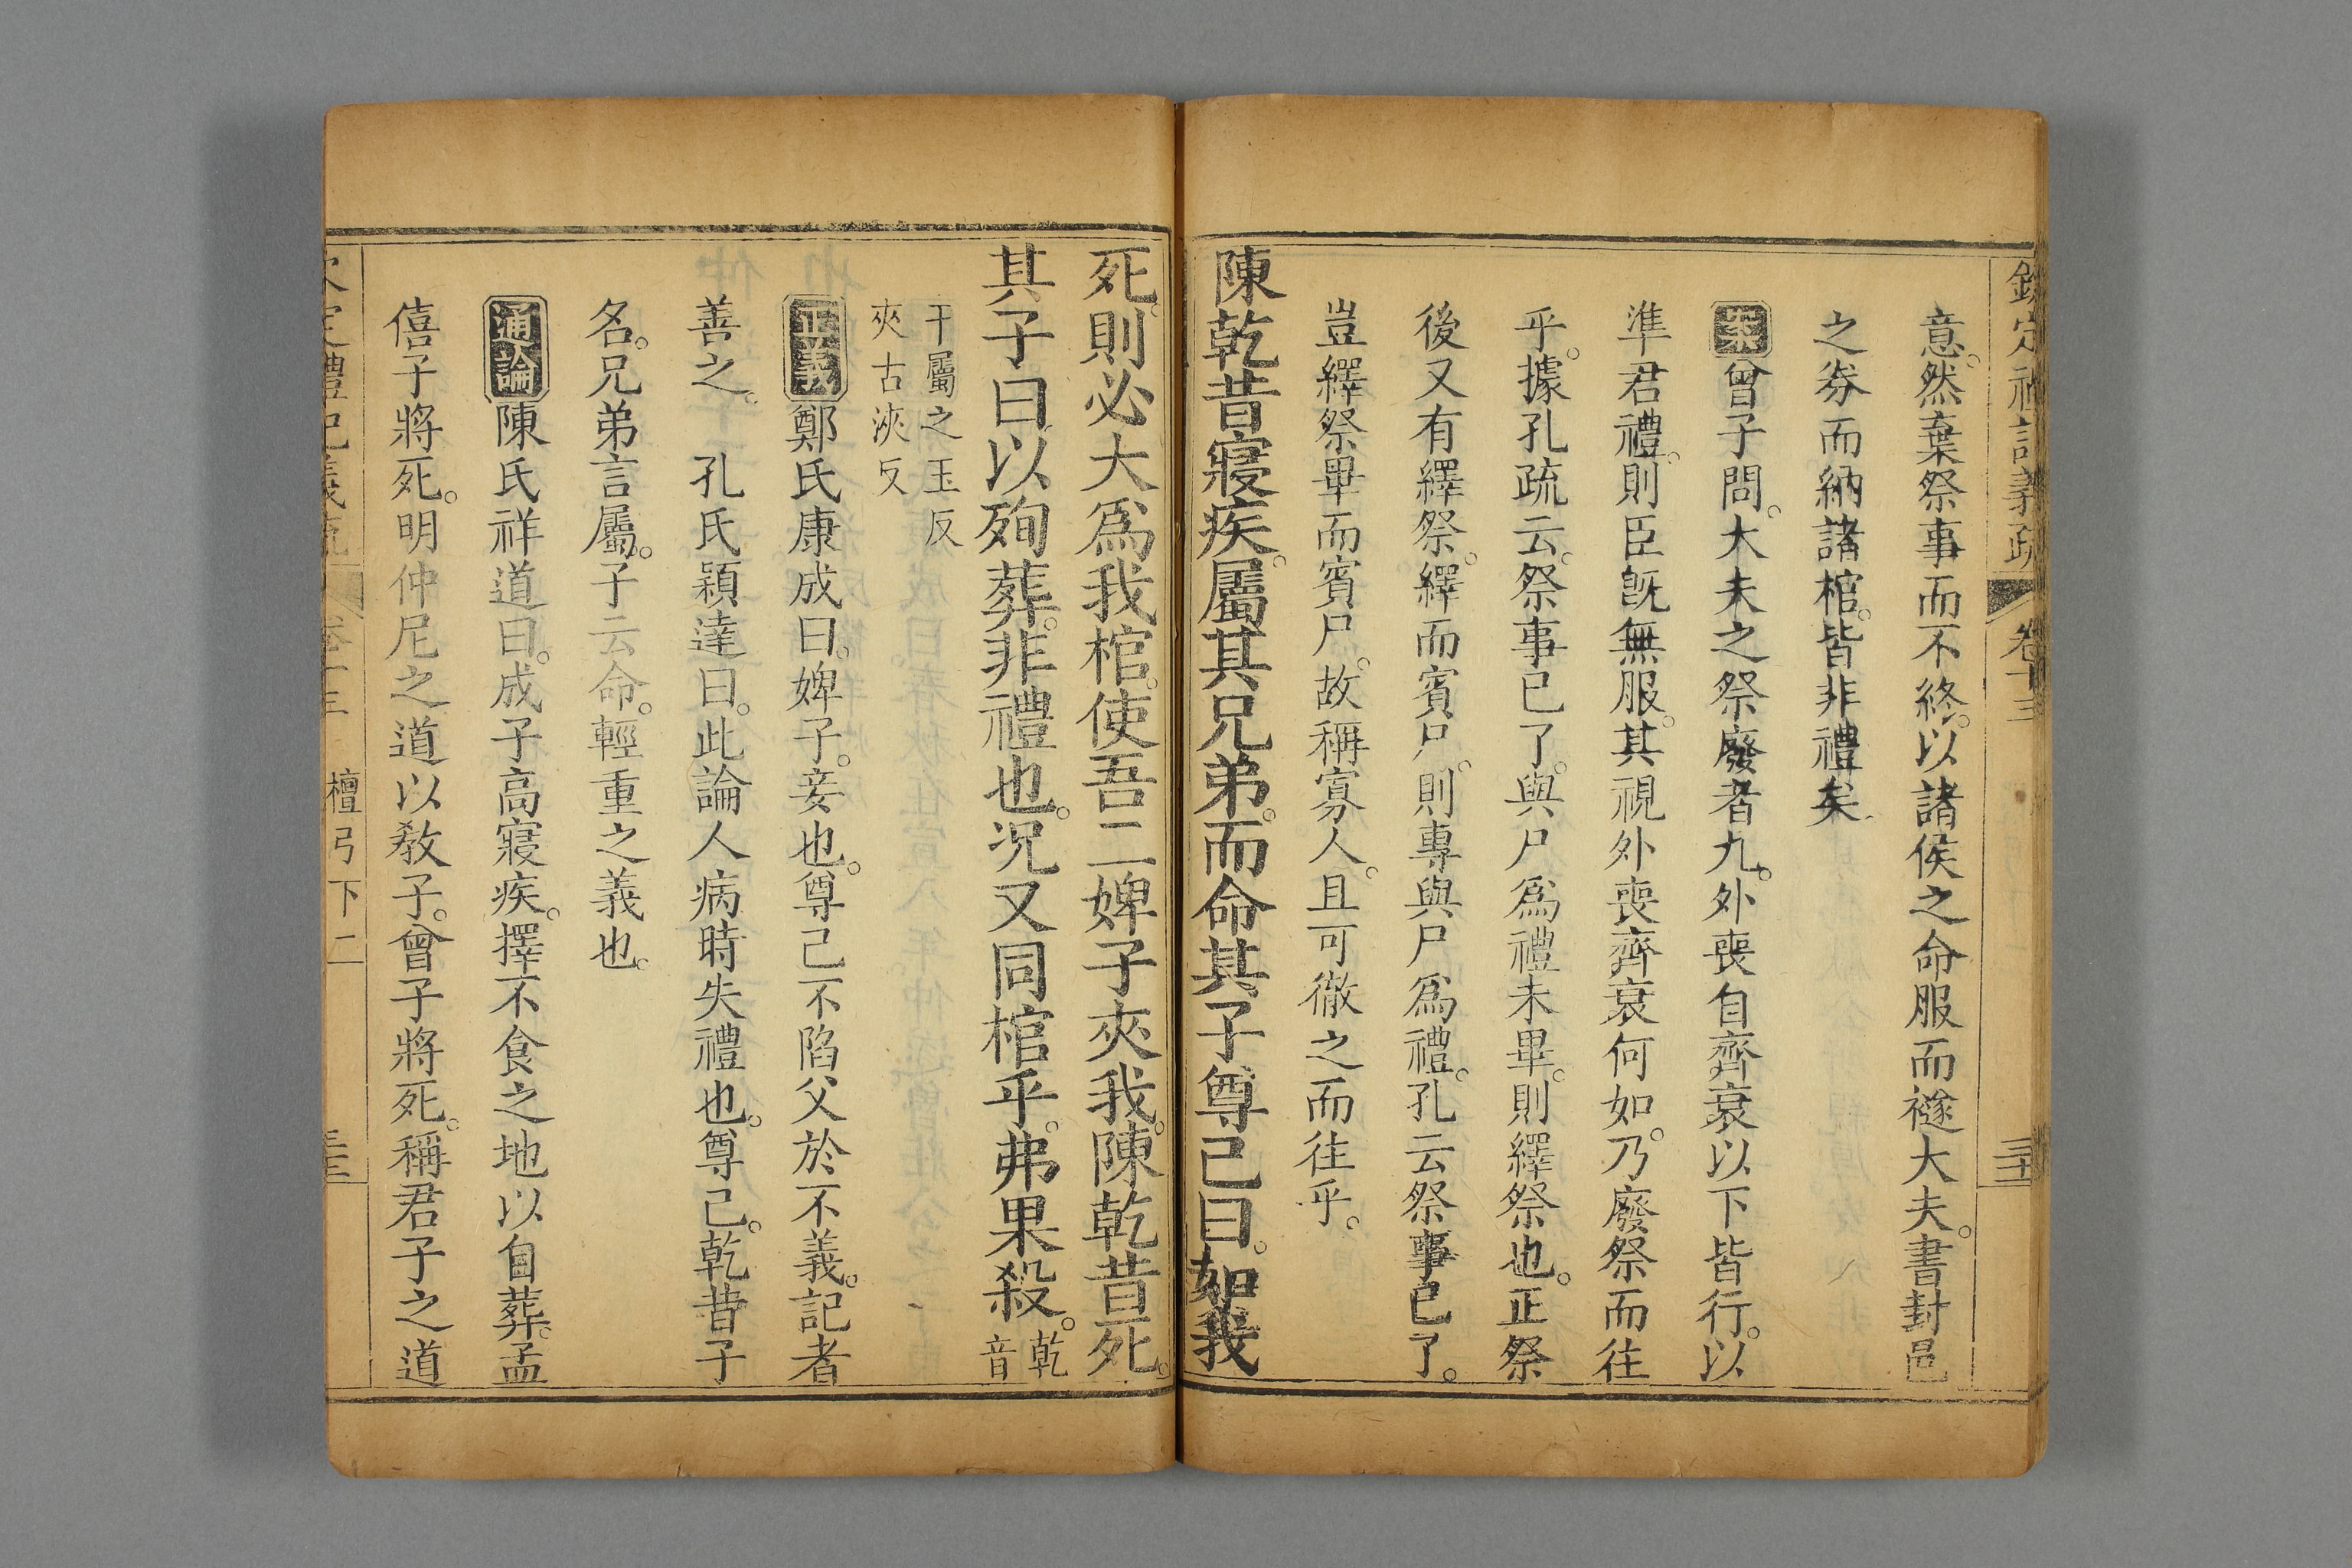 欽定禮記義疏 卷十三 三十
意。然棄祭事而不終。以諸侯之命服而襚大夫。書封邑
之券而納諸棺。皆非禮矣。
案曾子問。大夫之祭廢者九。外喪自齊衰以下皆行。以
準君禮。則臣旣無服。其視外喪齊衰何如。乃廢祭而往
乎。據孔疏云。祭事已了。與尸爲禮未畢。則繹祭也。正祭
後又有繹祭。繹而賓尸。則專與尸爲禮。孔云祭事已了。
豈繹祭畢而賓尸。故稱寡人。且可徹之而往乎。
陳乾昔寢疾。屬其兄弟。而命其子尊己曰。如我
死。則必大爲我棺。使吾二婢子夾我。陳乾昔死。
其子曰以殉葬。非禮也。况又同棺乎。弗果殺。乾音
干屬之玉反
夾古洽反
正義鄭氏康成曰。婢子。妾也。尊己不陷父於不義。記者
善之。 孔氏穎達曰。此論人病時失禮也。尊己。乾昔子
名。兄弟言屬。子云命。輕重之義也。
通論陳氏祥道曰。成子高寢疾。擇不食之地以自葬。孟
僖子將死。明仲尼之道以敎子。曾子將死。稱君子之道
欽定禮記義疏 卷十三 檀弓下二